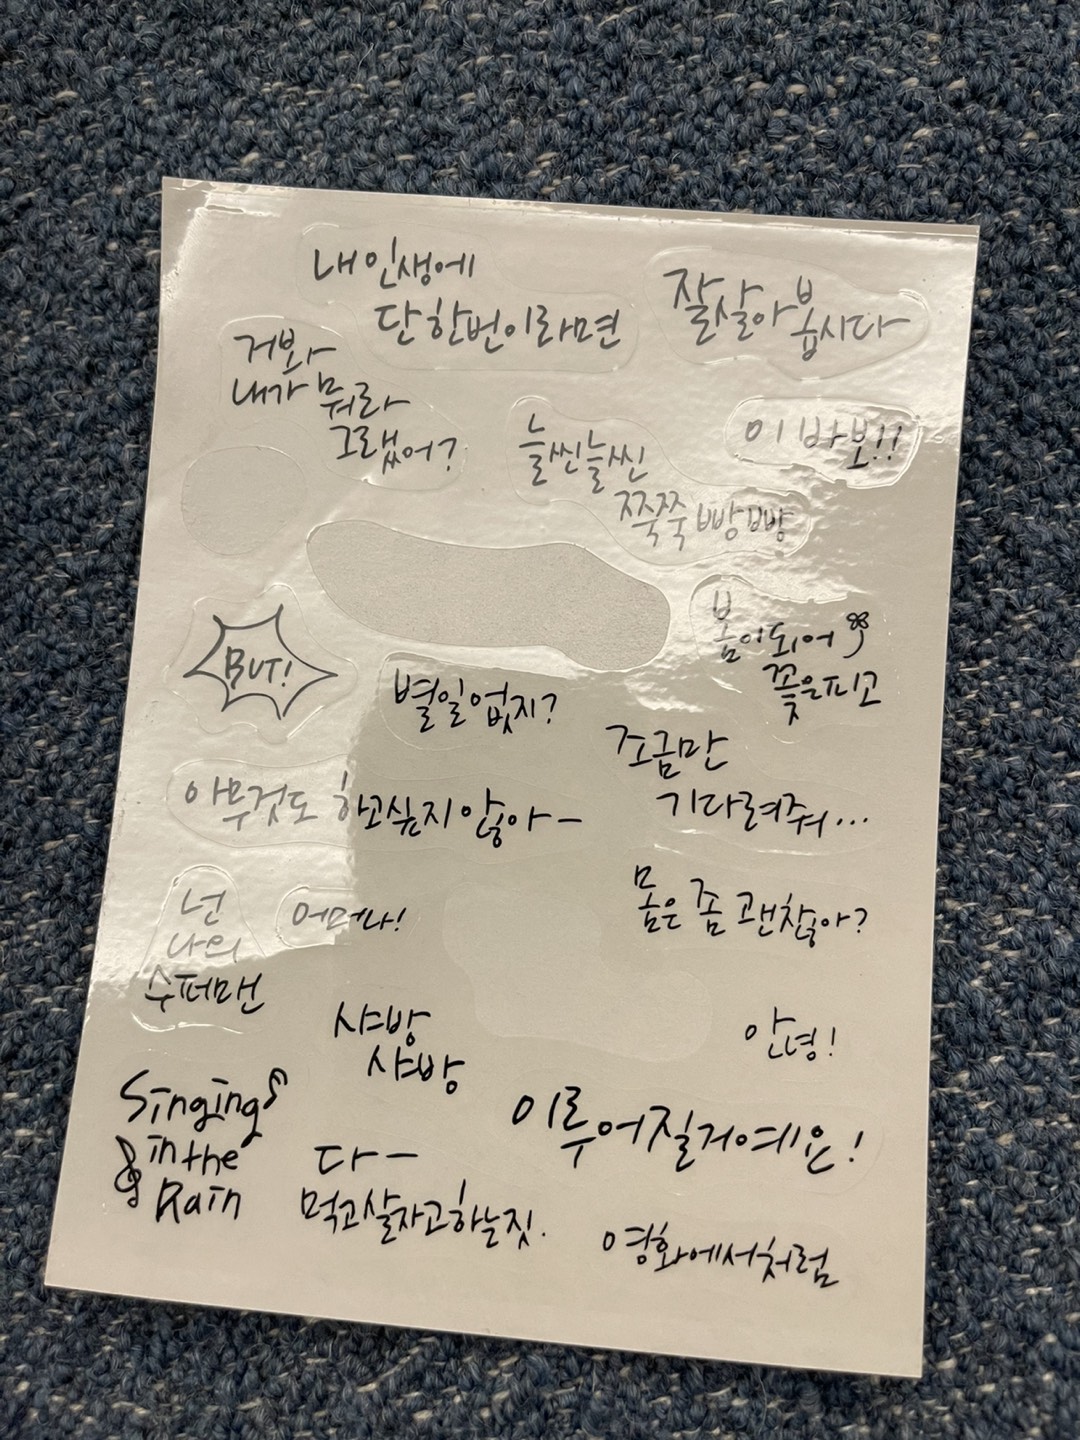 내 인생에
단 한번이라면
잘살아봅시다
거봐
내가 뭐라
그랬어?
늘씬늘씬
쭉쭉빵빵
이 바보!!
BUT!
봄이되어
꽃은피고
별일없지?
조금만
기다려줘...
아무것도 하고싶지 않아-
넌
나의
수퍼맨
어머나!
몸은 좀 괜찮아?
샤방
샤방
안녕!
Singing
in the
Rain
이루어질거예요!
다-
먹고살자고하는짓.
영화에서처럼